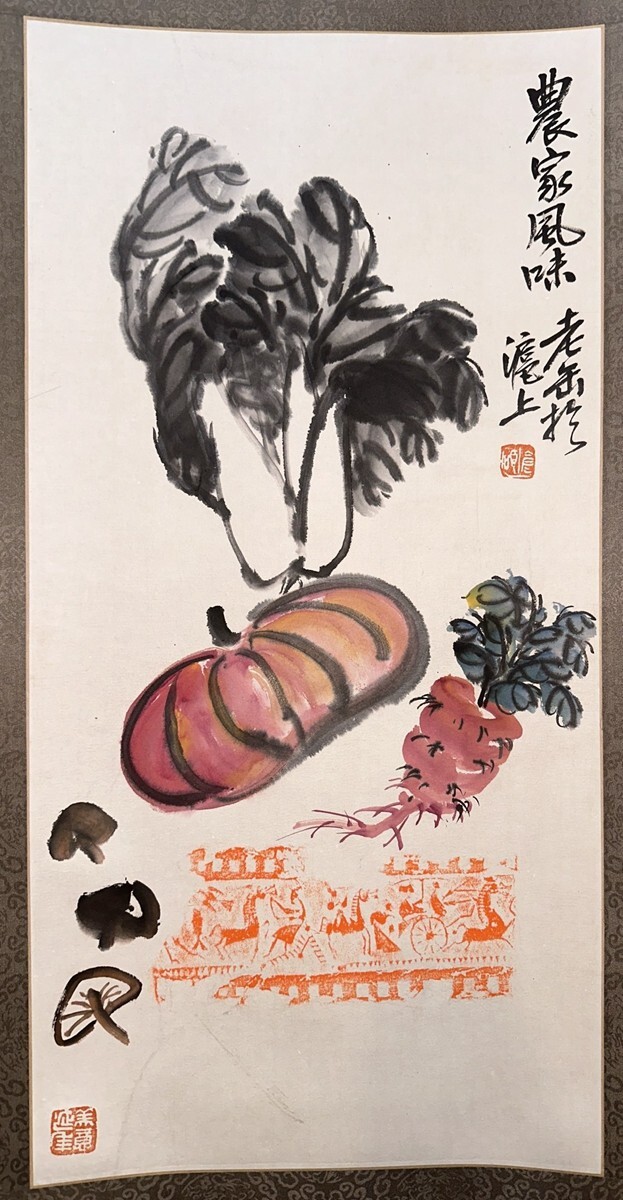 農家風味
老缶於
滬上